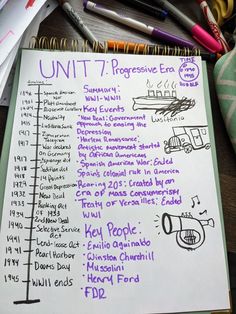 UNIT 7: Progressive Era
TIME
1890
1945
Summary:
WWI-WWII
Key Events
"New Deal: Government
approach to easing the
Depression
"Harlem Renaissance:
Artistic movement started
by African Americans
Spanish American War: Ended
Spain's colonial rule in America
Roaring 20s: Created by an
era of Mass Consumerism
Treaty of Versailles: Ended
WWI
Key People:
Emilio Aguinaldo
Winston Churchill
Mussolini
Henry Ford
FDR
Lusitania
1898
Spanish American War
Platt Amendment
Roosevelt Corollary
1914
Neutrality
Lusitania Sunk
Zimmerman Telegram
War declared on Germany
Espionage Act
Sedition Act
14 Points
Great Depression
New Deal
1933
Banking Act of 1933
2nd New Deal
1940
Selective Service Act
1941
Lend-lease Act
1941
Pearl Harbor
1944
Dawes Day
1945
WWII ends